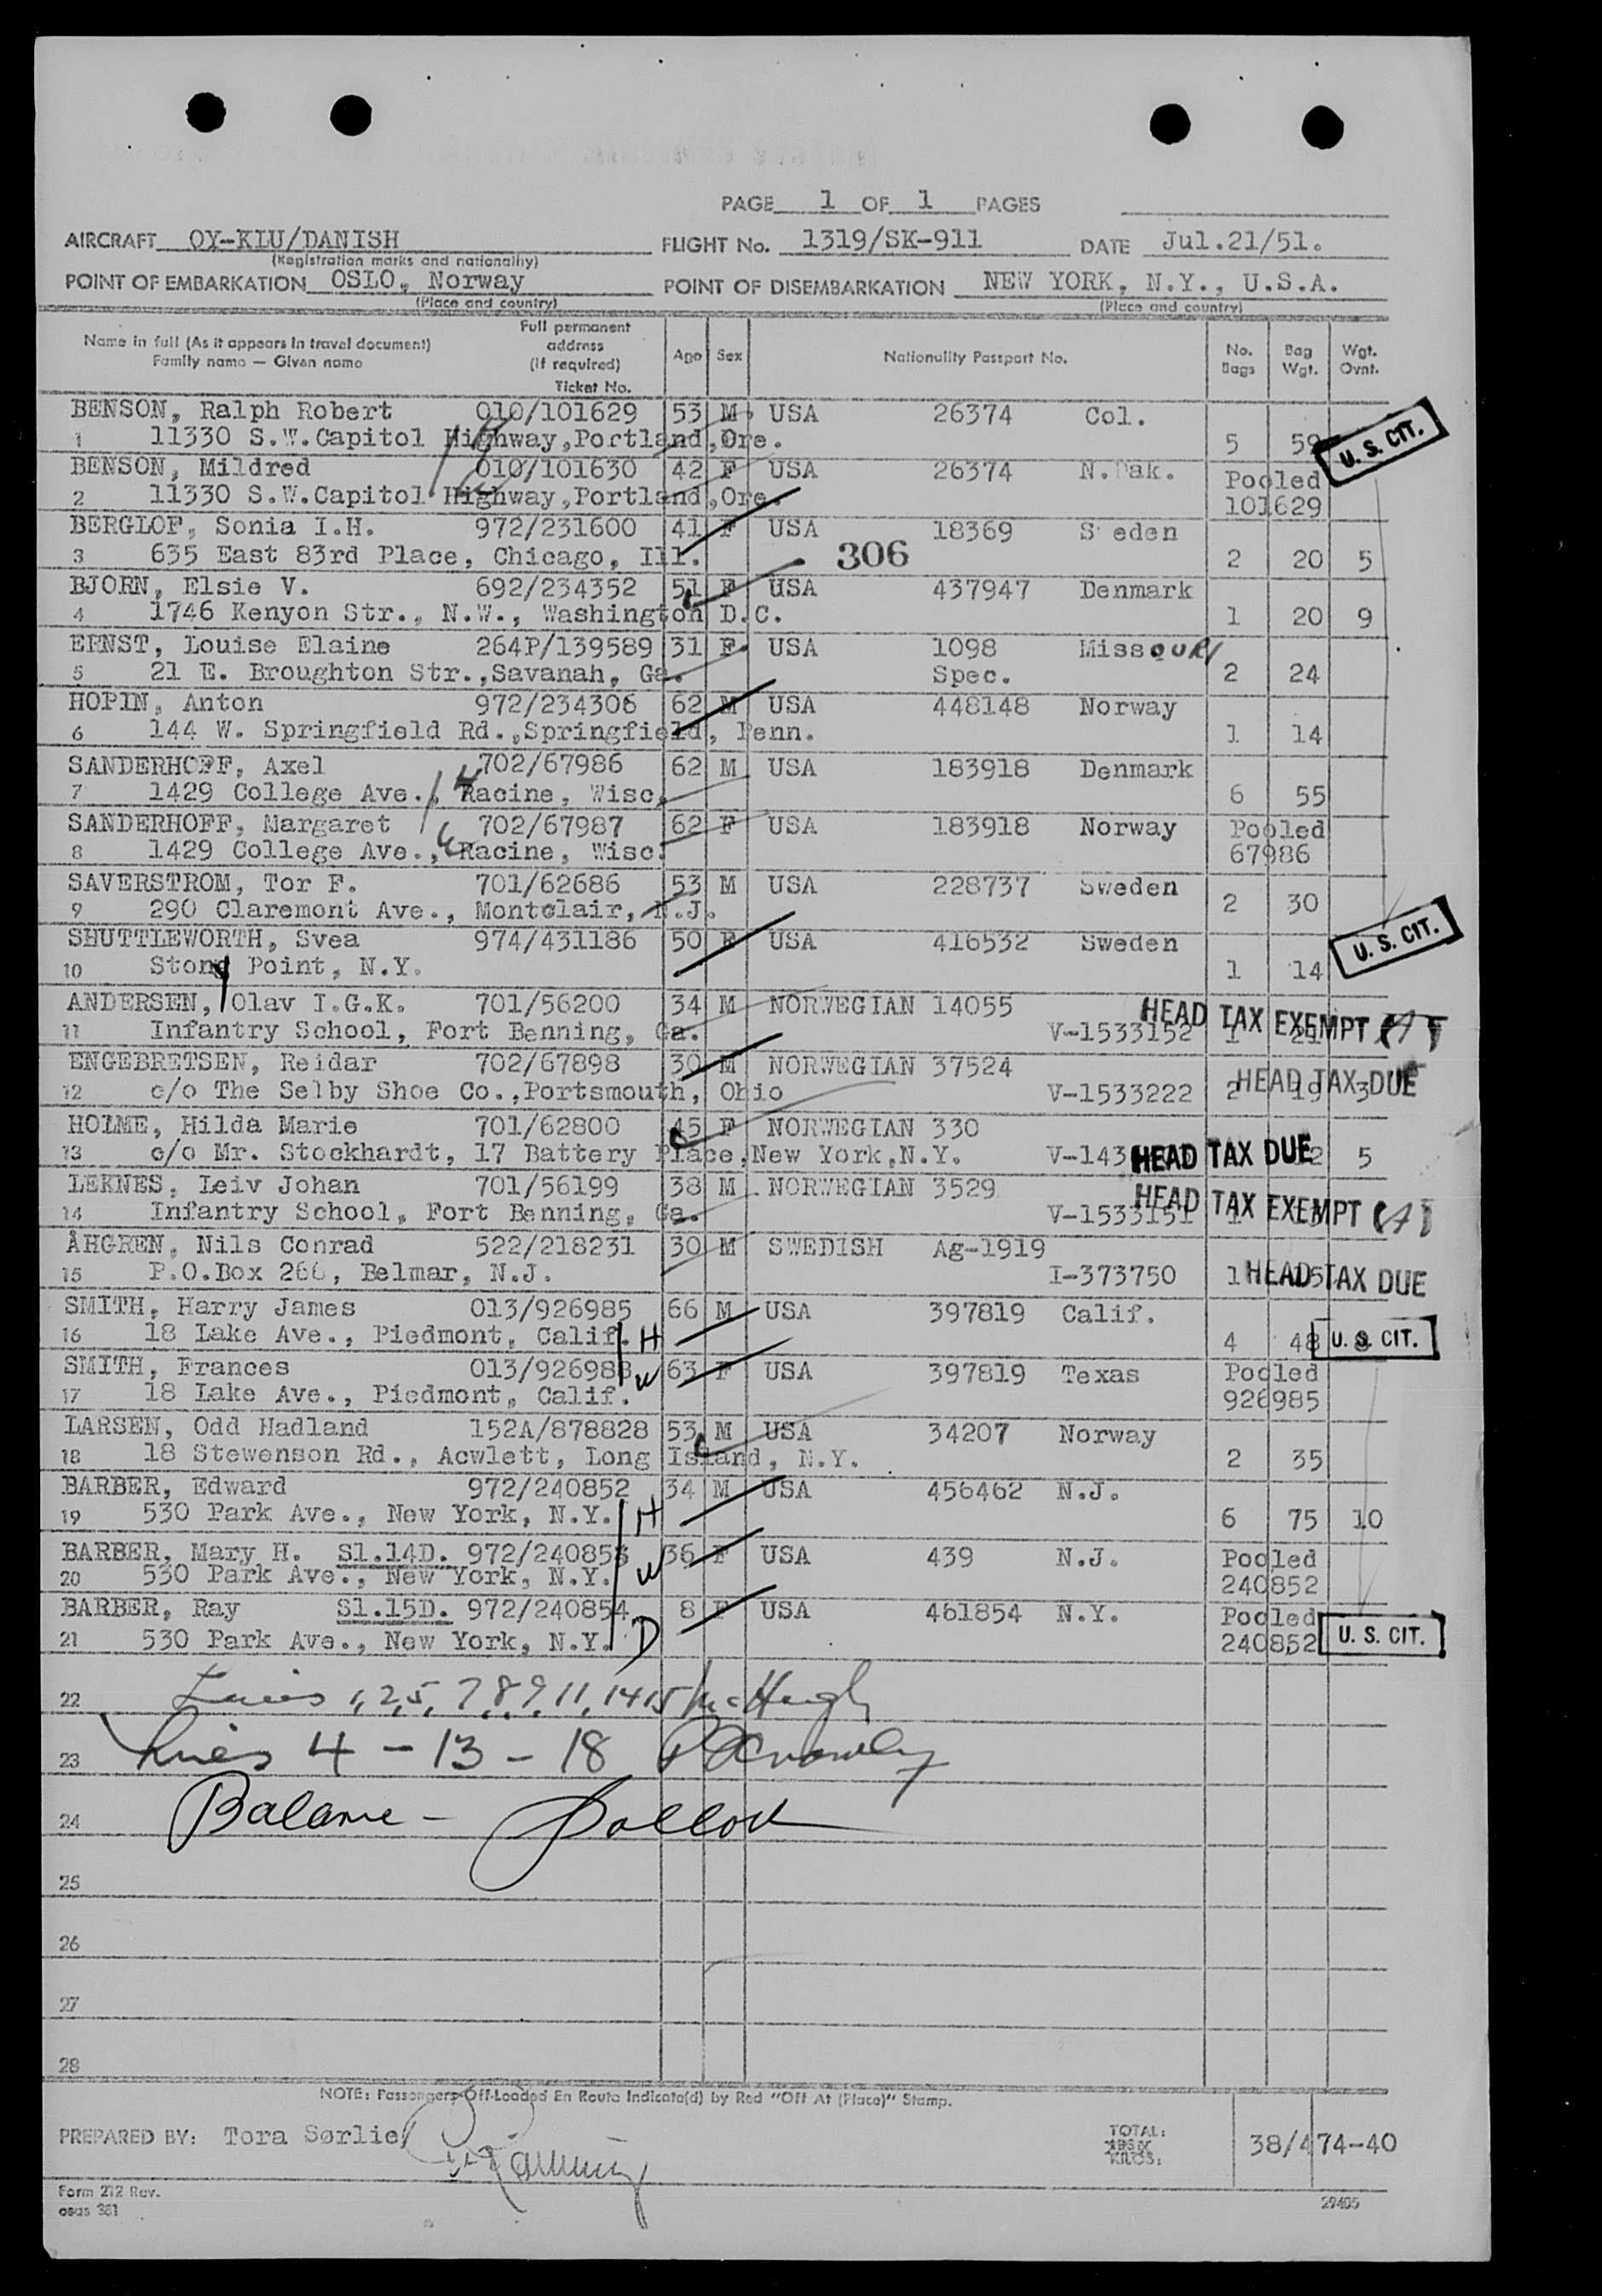 PAGE 1 OF 1 PAGES
AIRCRAFT OY-KLU/DANISH FLIGHT No. 1319/SK-911 DATE Jul.21/51.
(Registration marks and nationality)
POINT OF EMBARKATION OSLO, Norway POINT OF DISEMBARKATION NEW YORK, N.Y., U.S.A.
(Place and country) (Place and country)
Name in full (As it appears in travel document) Family name — Given name Full permanent address (If required) Ticket No. Age Sex Nationality Passport No. No. Bags Bag Wgt. Wgt. Ovnt.
BENSON, Ralph Robert 010/101629 53 M USA 26374 Col.
1 11330 S.W.Capitol Highway,Portland,Ore. 5 59 U. S. CIT.
BENSON, Mildred 010/101630 42 F USA 26374 N.Dak. Pooled
2 11330 S.W.Capitol Highway,Portland,Ore. 101629
BERGLOF, Sonia I.H. 972/231600 41 F USA 18369 S eden
3 635 East 83rd Place, Chicago, Ill. 306 2 20 5
BJORN, Elsie V. 692/234352 51 F USA 437947 Denmark
4 1746 Kenyon Str., N.W., Washington D.C. 1 20 9
ERNST, Louise Elaine 264P/139589 31 F USA 1098 Missouri
5 21 E. Broughton Str.,Savanah, Ga. Spec. 2 24
HOPIN, Anton 972/234306 62 M USA 448148 Norway
6 144 W. Springfield Rd.,Springfield, Penn. 1 14
SANDERHOFF, Axel 702/67986 62 M USA 183918 Denmark
7 1429 College Ave., Racine, Wisc. H 6 55
SANDERHOFF, Margaret 702/67987 62 F USA 183918 Norway Pooled
8 1429 College Ave., Racine, Wisc. 67986
SAVERSTROM, Tor F. 701/62686 53 M USA 228737 Sweden
9 290 Claremont Ave., Montclair, N.J. 2 30
SHUTTLEWORTH, Svea 974/431186 50 F USA 416532 Sweden
10 Stony Point, N.Y. 1 14 U. S. CIT.
ANDERSEN, Olav I.G.K. 701/56200 34 M NORWEGIAN 14055 HEAD TAX EXEMPT
11 Infantry School, Fort Benning, Ga. V-1533152 1
ENGEBRETSEN, Reidar 702/67898 30 M NORWEGIAN 37524
12 c/o The Selby Shoe Co.,Portsmouth, Ohio V-1533222 2 19 3 HEAD TAX DUE
HOLME, Hilda Marie 701/62800 45 F NORWEGIAN 330
13 c/o Mr. Stockhardt, 17 Battery Place,New York,N.Y. HEAD TAX DUE 5
LEKNES, Leiv Johan 701/56199 38 M NORWEGIAN 3529 HEAD TAX EXEMPT
14 Infantry School, Fort Benning, Ga. V-1533151 1
ÅHGREN, Nils Conrad 522/218231 30 M SWEDISH Ag-1919
15 P.O.Box 266, Belmar, N.J. I-373750 1 HEAD TAX DUE
SMITH, Harry James 013/926985 66 M USA 397819 Calif.
16 18 Lake Ave., Piedmont, Calif. H 4 48 U. S. CIT.
SMITH, Frances 013/926988 63 F USA 397819 Texas Pooled
17 18 Lake Ave., Piedmont, Calif. W 926985
LARSEN, Odd Hadland 152A/878828 53 M USA 34207 Norway
18 18 Stewenson Rd., Acwlett, Long Island, N.Y. 2 35
BARBER, Edward 972/240852 34 M USA 456462 N.J.
19 530 Park Ave., New York, N.Y. H 6 75 10
BARBER, Mary H. Sl.14D. 972/240853 36 F USA 439 N.J. Pooled
20 530 Park Ave., New York, N.Y. W 240852
BARBER, Ray Sl.15D. 972/240854 8 F USA 461854 N.Y. Pooled
21 530 Park Ave., New York, N.Y. D 240852 U. S. CIT.
22 Lines 1, 2, 5, 7, 8, 9, 11, 14 15 McHugh
23 Lines 4 - 13 - 18
24 Balance -
25
26
27
28
NOTE: Passengers Off-Loaded En Route Indicate(d) by Red "Off At (Place)" Stamp.
PREPARED BY: Tora Sørlie TOTAL: KILOS: 38/474-40
Form 212 Rev.
osas 381 29405